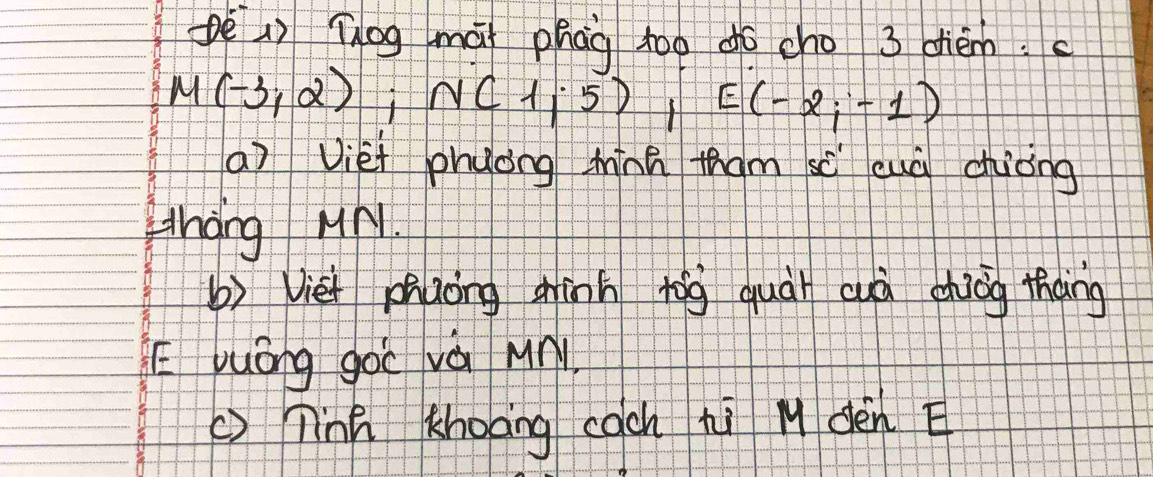 Đề 1) Trog mặt phảg toạ độ cho 3 điểm : c
M(-3; 2) ; N( 1; 5) ; E(-2; -1)
a) Viết phương trình tham số của đường
thẳng MN.
b) Viết phương trình tổg quát của đườg thẳng
E vuông góc với MN.
c) Tính khoảng cách từ M đến E